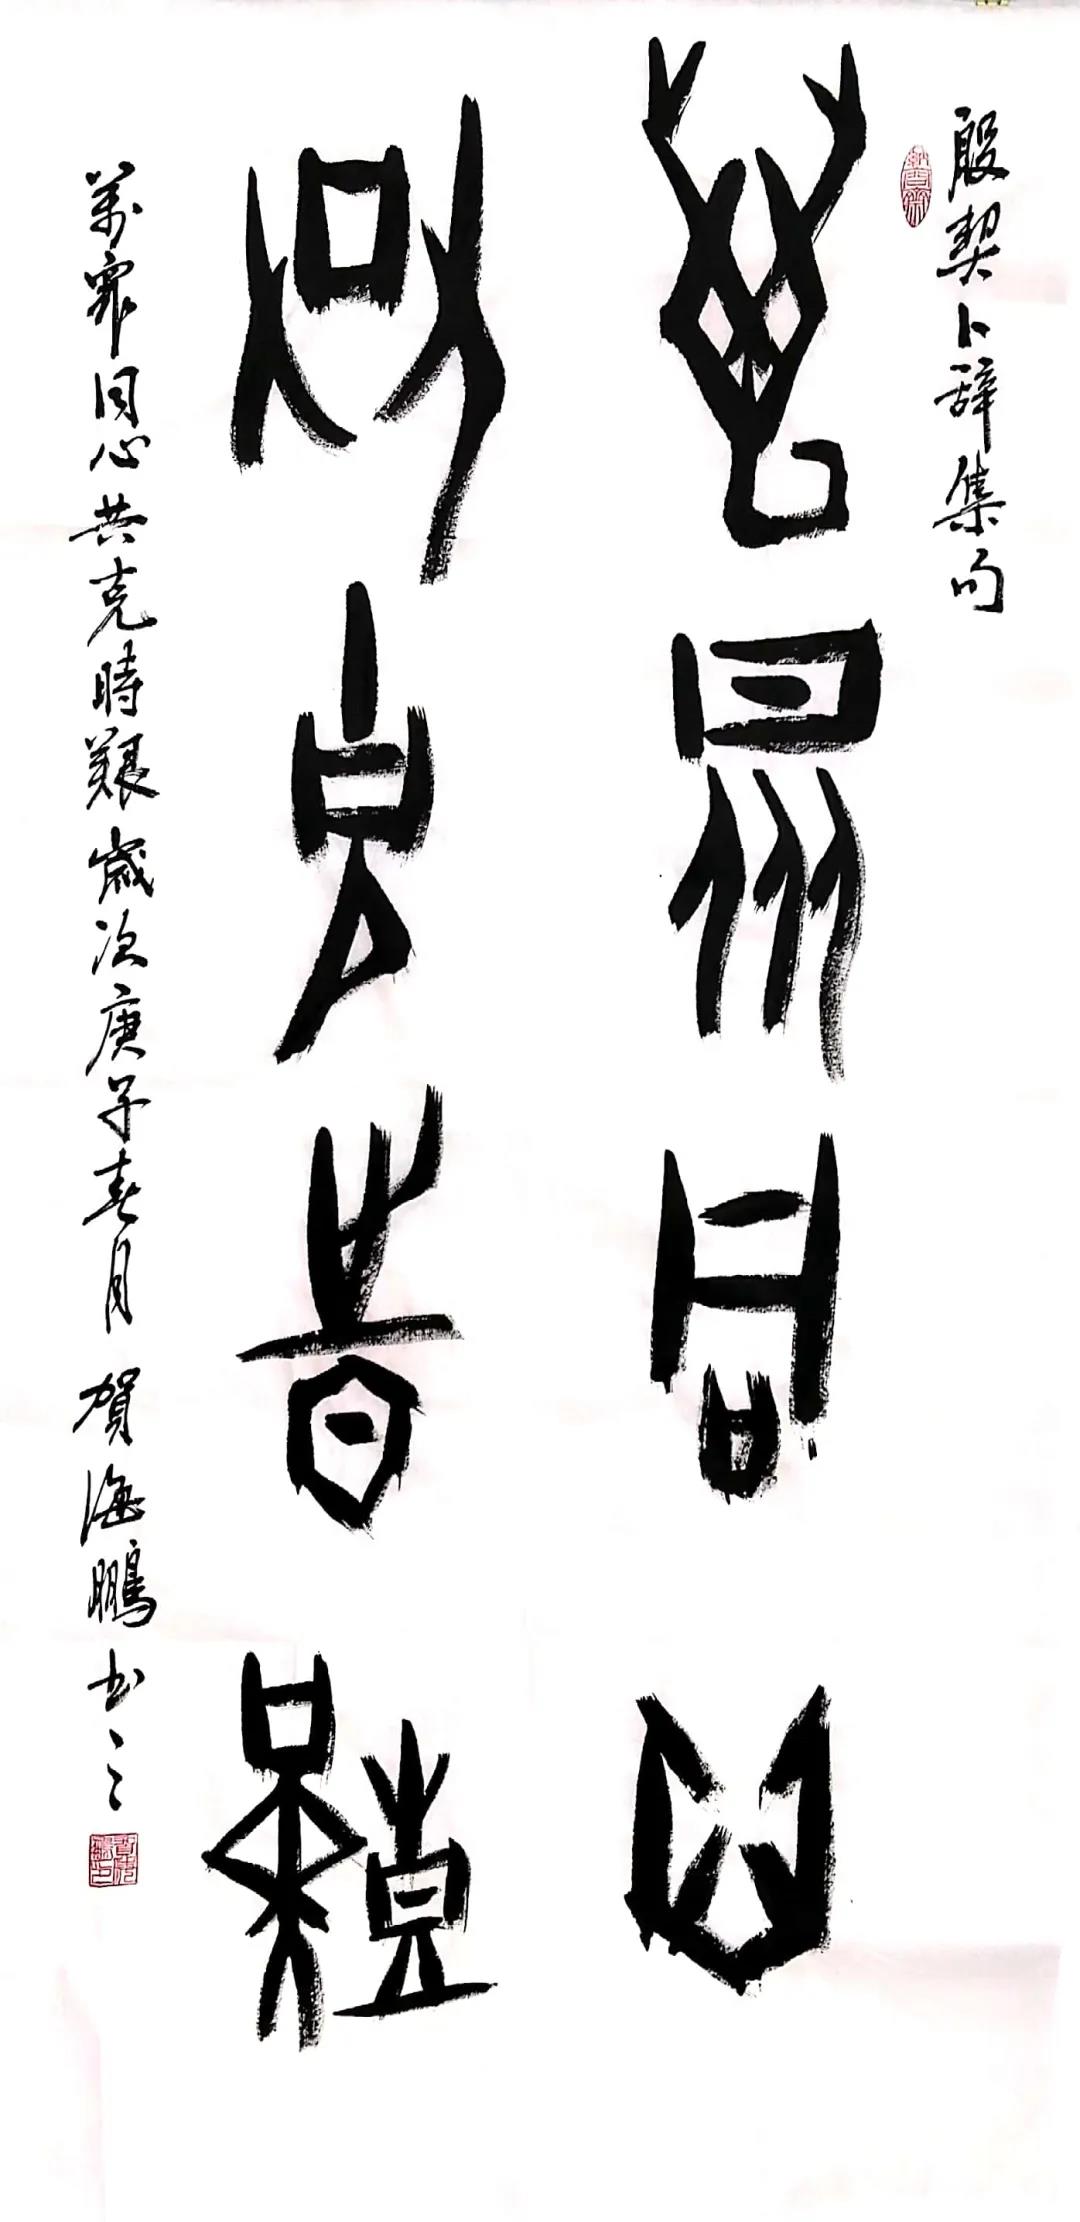 殷契卜辞集句
萬眾同心
共克時艱
萬眾同心共克時艱歲次庚子春月賀海鵬书